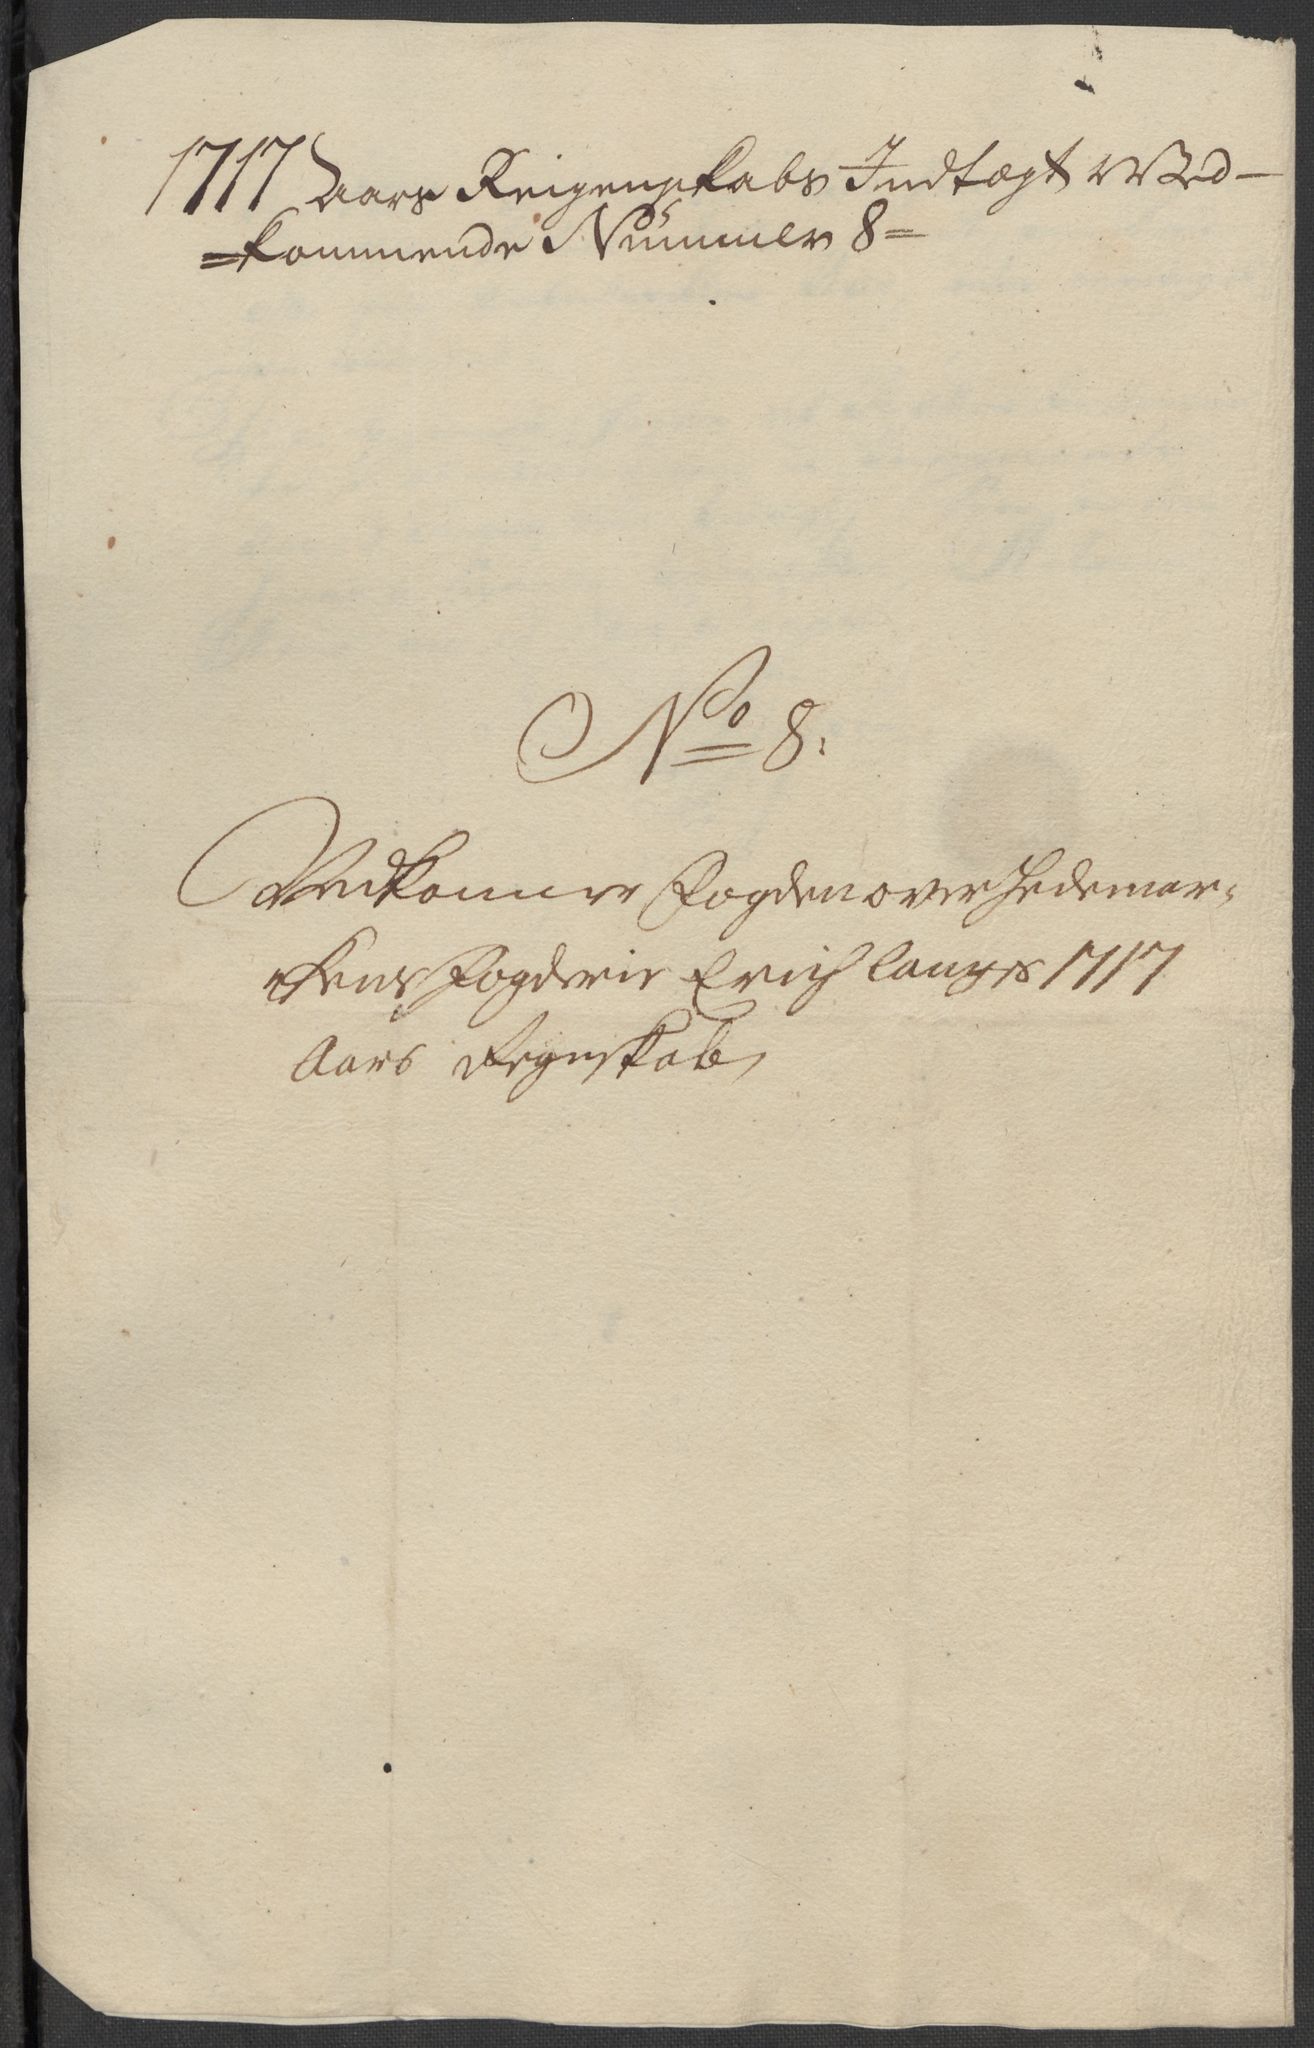 1717 Aars Reigenskabs Indtægt Wed-
=kommende Nummer 8=
No 8.
Vedkommer Fogden over Hedemar-
kens Fogderie Erich Langes 1717
Aars Regnskab,